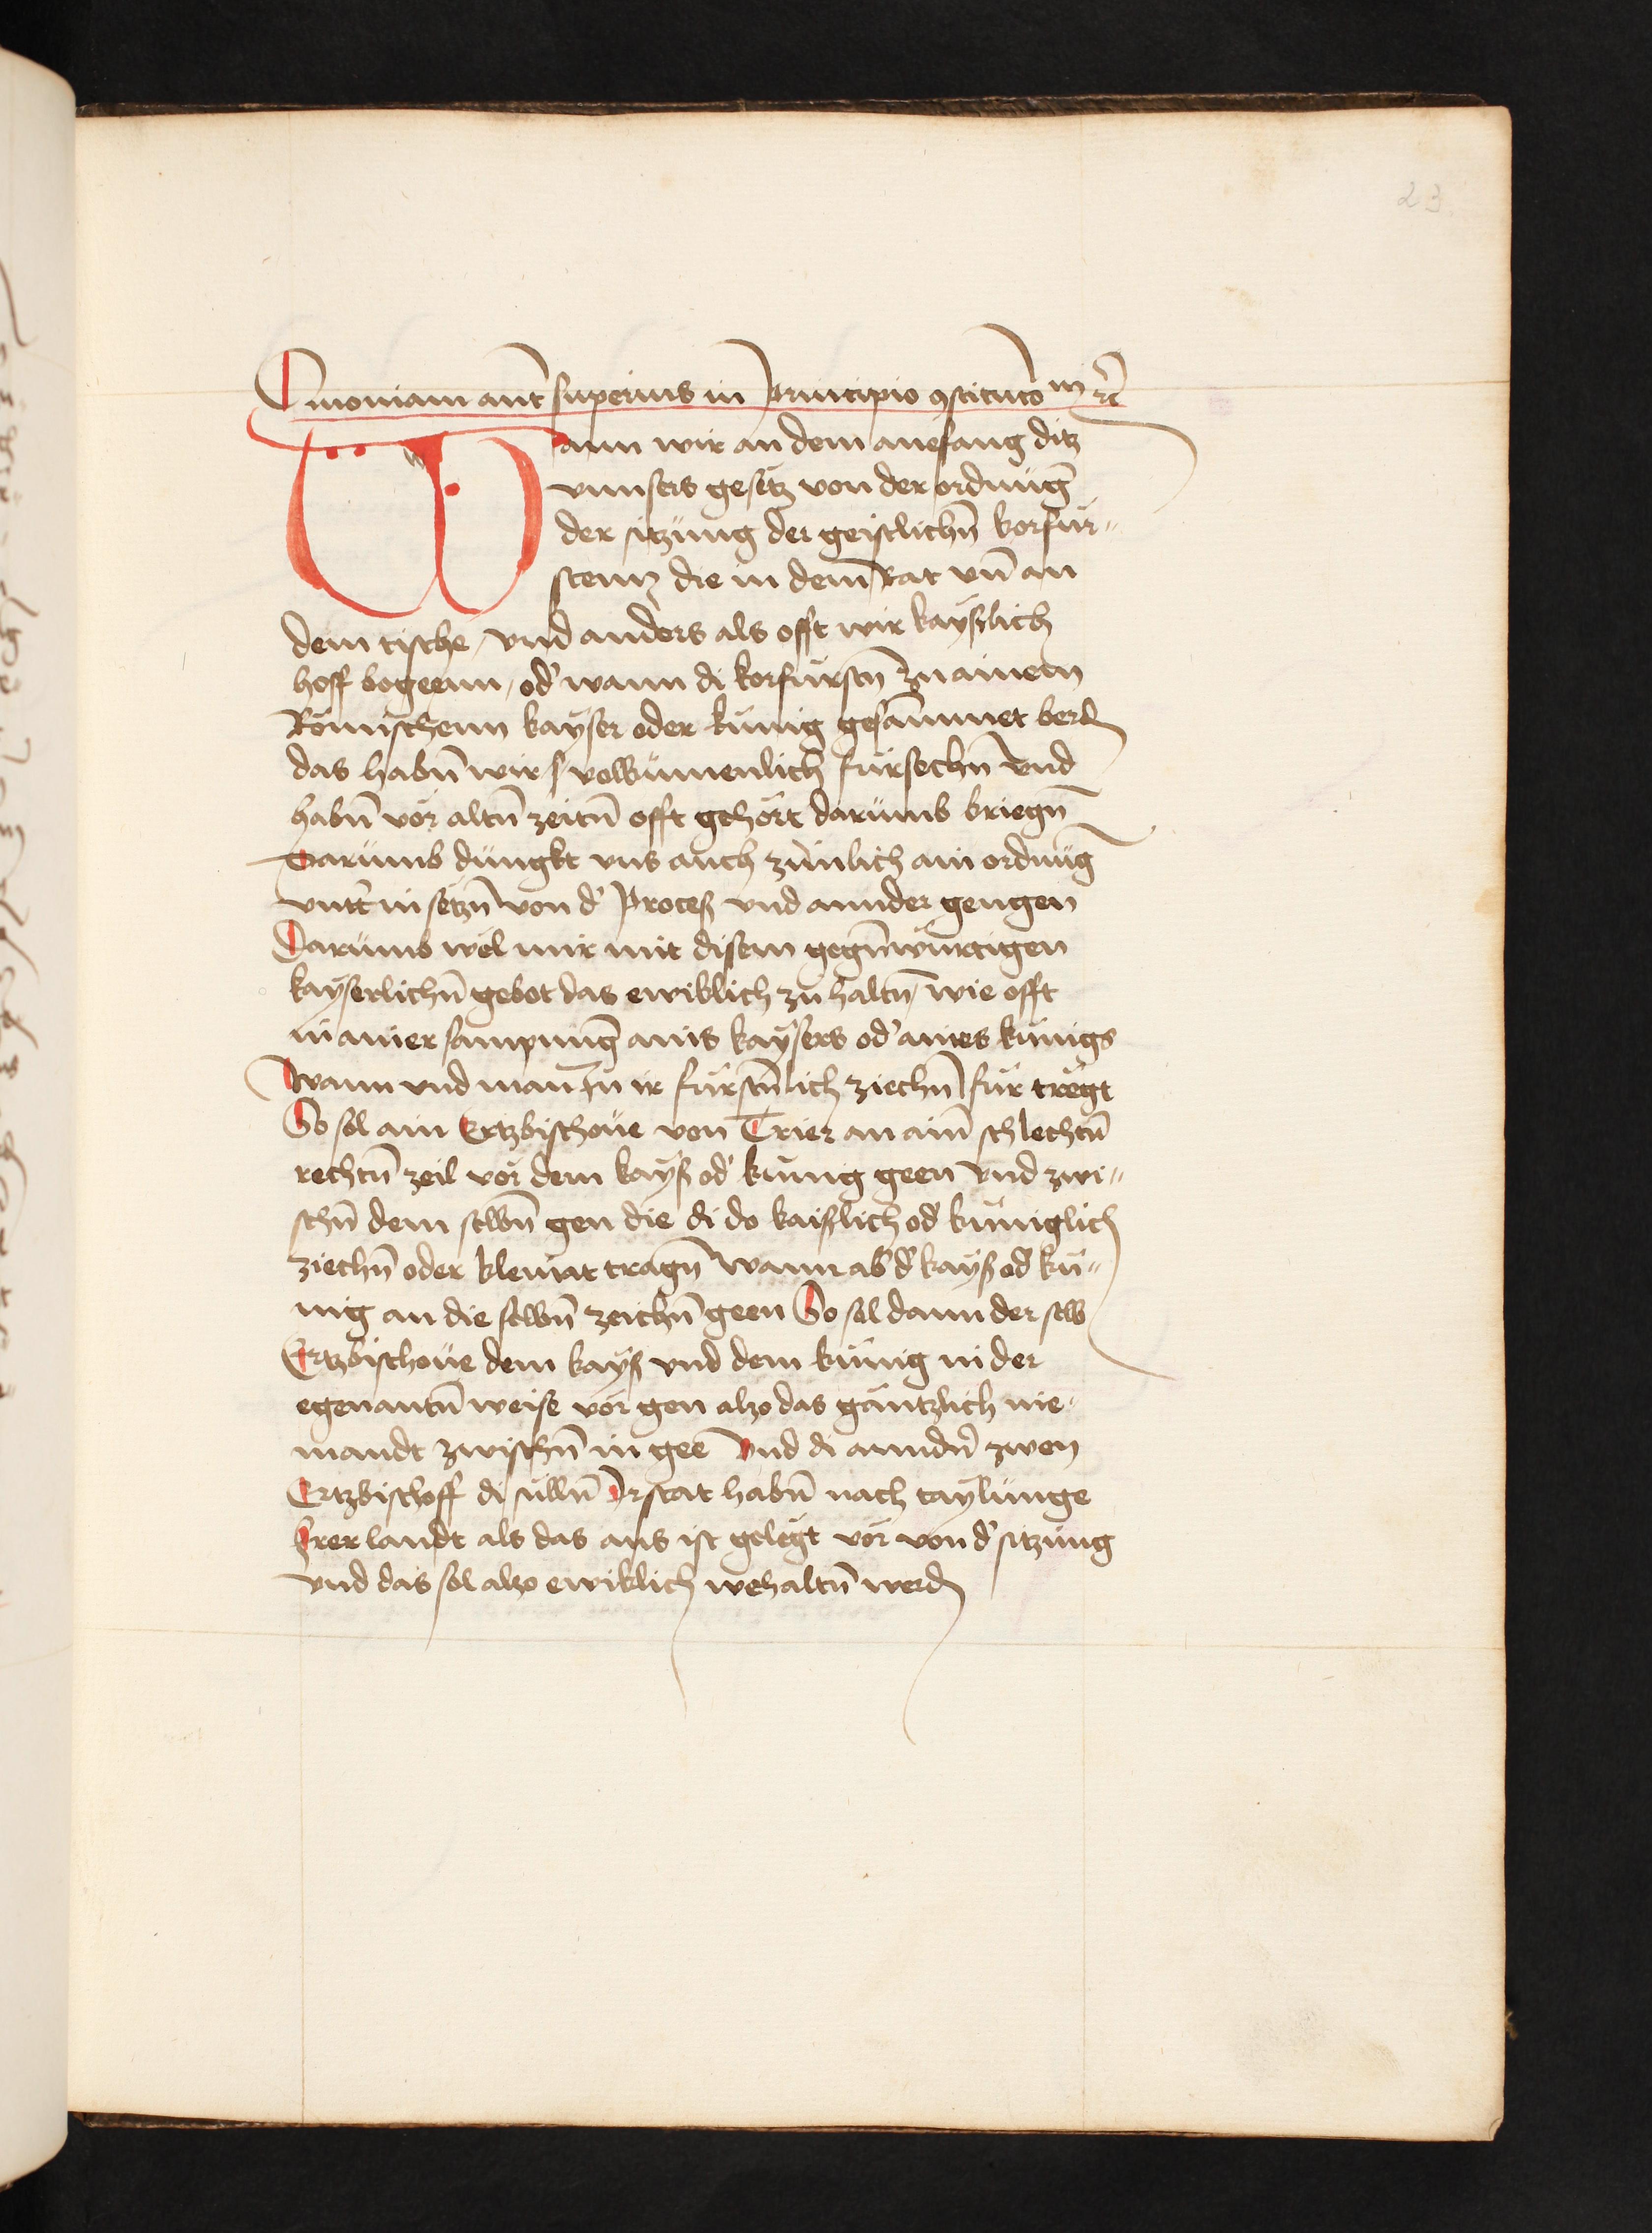 23
Quoniam aut̄ superius in Principio ꝯstituto m̄ ꝛc̄
Wann wir an dem anefang ditz
vnnsers gesetz von der ordnu̇nḡ
der sitzu̇ng der geistlichn̄ korfür-
stenn die in dem Rat vn̄ an
dem tische / vnd anders als offt wir kayßlich
hoff begeenn / od' wann di korfürstn̄ zu ainem
Römischenn kayser oder kunig gesammnet berdn̄
das habn̄ wir volkümenlich fürsechn̄ Vnd
habn̄ vor altn̄ zeitn̄ offt gehört darümb kriegn̄
Darümb dungkt vns auch zimlich ain ordnüḡ
vnt' in setzn̄ von d' Proceß vnd annder gengen
Darümb wöl mir mit disem gegn̄wurtigen
kayserlichn̄ gebot das ewiklich zu haltn̄ / wie offt
in ainer sampnüḡ ains kaysers od' aines künigs
Wann vnd man In ir fürstn̄lich ziechn̄ für tregt
So sol ain Ertzbischoue von Trier an ain̄ schlechtn̄
rechtn̄ zeil vor dem kayß od' kunig geen Vnd zwi-
schn̄ dem selbn̄ gen die di do kaißlich od' künigliche
ziechn̄ oder klemat tragn̄ Wann ab' d' kayß od' kü-
nig an die selbn̄ zeichn̄ geen So sol dann der selb
Ertzbischoue dem kayß vnd dem künig in der
egenantn̄ weise vor gen alzo das gäntzlich nie-
mandt zwischn̄ in gee Vnd di anndn̄' zwen
Ertzbischoff di sülln̄ Ir stat habn̄ nach taylunge
Irer landt als das aus ist gelegt vor von d' sitzüng
vnd das sol alzo ewiklich wehaltn̄ werdn̄